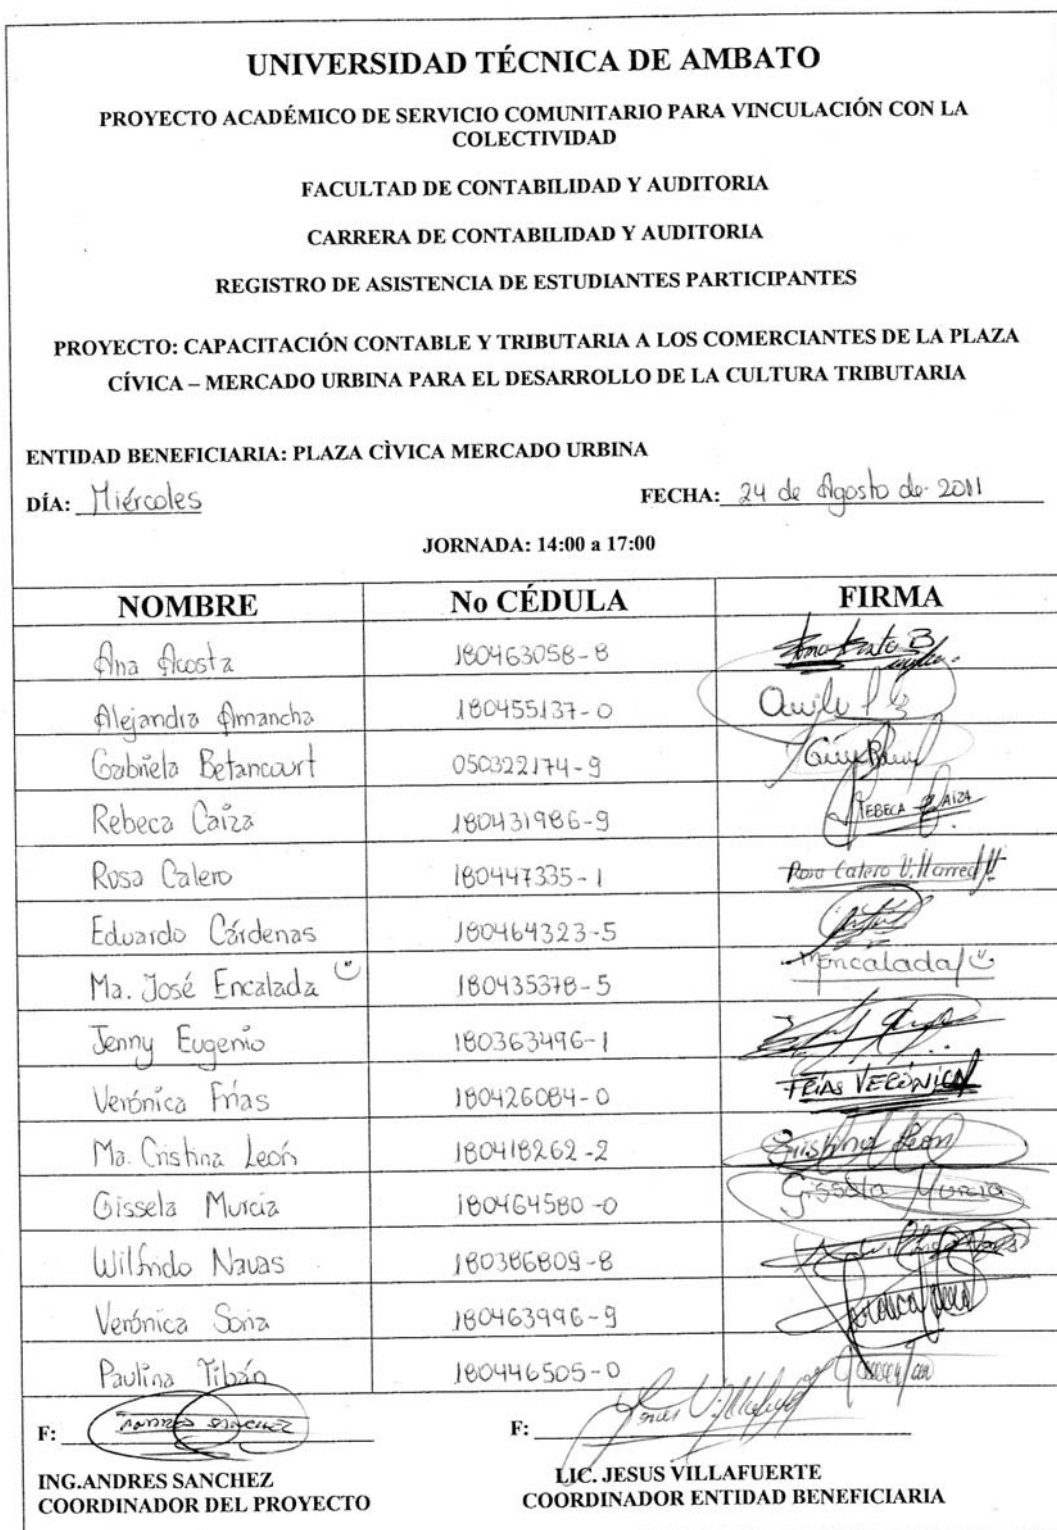 UNIVERSIDAD TÉCNICA DE AMBATO
PROYECTO ACADÉMICO DE SERVICIO COMUNITARIO PARA VINCULACIÓN CON LA
COLECTIVIDAD
FACULTAD DE CONTABILIDAD Y AUDITORIA
CARRERA DE CONTABILIDAD Y AUDITORIA
REGISTRO DE ASISTENCIA DE ESTUDIANTES PARTICIPANTES
PROYECTO: CAPACITACIÓN CONTABLE Y TRIBUTARIA A LOS COMERCIANTES DE LA PLAZA
CÍVICA – MERCADO URBINA PARA EL DESARROLLO DE LA CULTURA TRIBUTARIA
ENTIDAD BENEFICIARIA: PLAZA CÌVICA MERCADO URBINA
DÍA: Miércoles FECHA: 24 de Agosto de 2011
JORNADA: 14:00 a 17:00
NOMBRE No CÉDULA FIRMA
Ana Acosta 180463058-8
Alejandra Amancha 180455137-0
Gabriela Betancourt 050322174-9
Rebeca Caiza 180431986-9 REBECA CAIZA
Rosa Calero 180447335-1 Rosa Calero Villarreal
Eduardo Cárdenas 180464323-5
Ma. José Encalada 180435378-5 MEncalada
Jenny Eugenio 180363496-1
Verónica Frías 180426084-0 FRÍAS VERÓNICA
Ma. Cristina León 180418262-2 Cristina León
Gissela Murcia 180464580-0 Gissela Murcia
Wilfrido Navas 180386809-8 Wilfrido Navas
Verónica Soria 180463996-9
Paulina Tibán 180446505-0
F: ANDRES SANCHEZ F: Jesus Villafuerte
ING.ANDRES SANCHEZ LIC. JESUS VILLAFUERTE
COORDINADOR DEL PROYECTO COORDINADOR ENTIDAD BENEFICIARIA